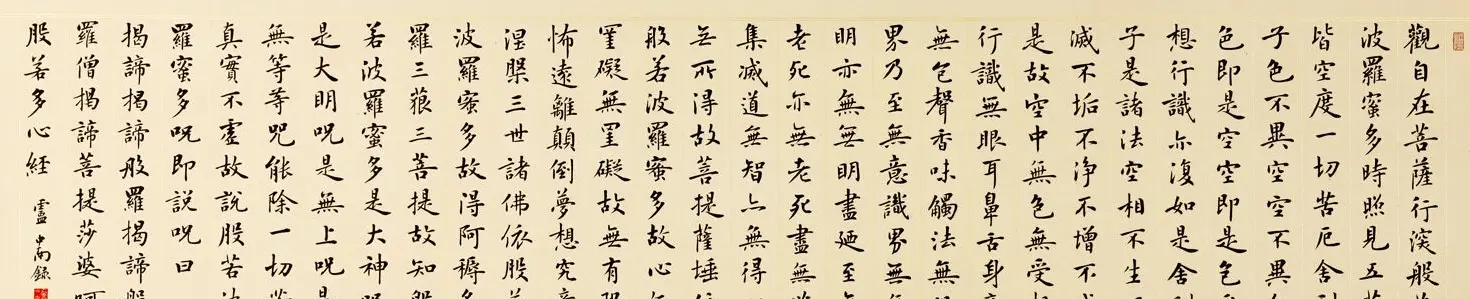 觀自在菩薩行深般
波羅蜜多時照見五
皆空度一切苦厄舍
子色不異空空不異
色即是空空即是色
想行識亦復如是舍
子是諸法空相不生
滅不垢不淨不增不
是故空中無色無受
行識無眼耳鼻舌身
無色聲香味觸法無
界乃至無意識界無
明亦無無明盡廼至
老死亦無老死盡無
集滅道無智亦無得
无所得故菩提薩埵
般若波羅蜜多故心
罣礙無罣礙故無有
怖遠離顛倒夢想究
涅槃三世諸佛依般
波羅蜜多故得阿耨
羅三藐三菩提故知
若波羅蜜多是大神
是大明咒是無上咒
無等等咒能除一切
真實不虛故說般若
羅蜜多呪即説呪曰
揭諦揭諦般羅揭諦
羅僧揭諦菩提莎婆
般若多心經
盧中南錄